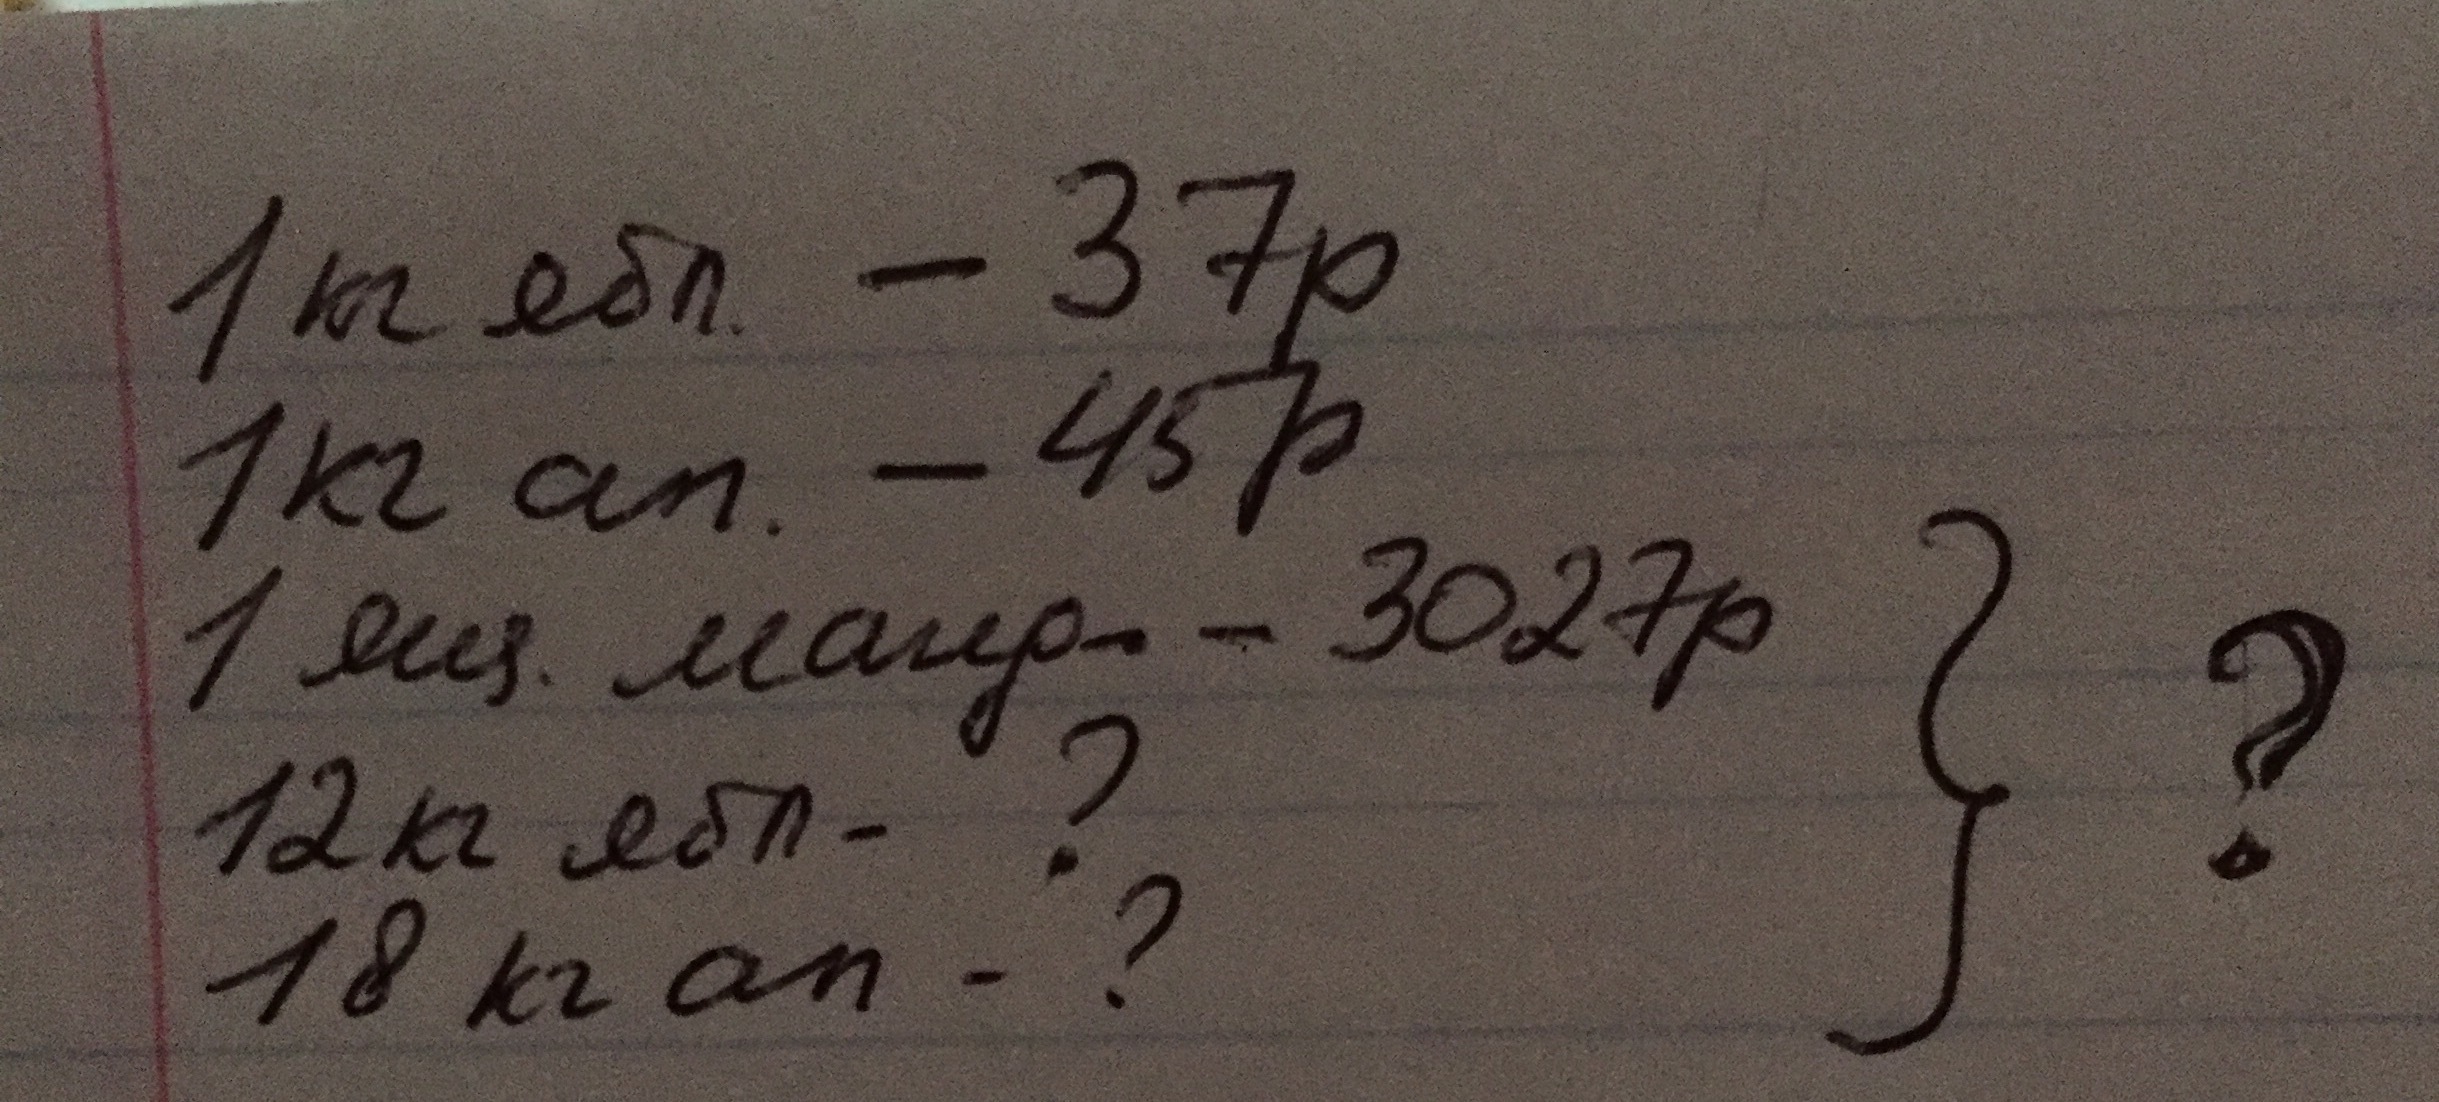 1 кг ябл. – 37р
1 кг ап. – 45р
1 ящ. мандр. – 3027р
12 кг ябл - ?
18 кг ап - ?
} ?